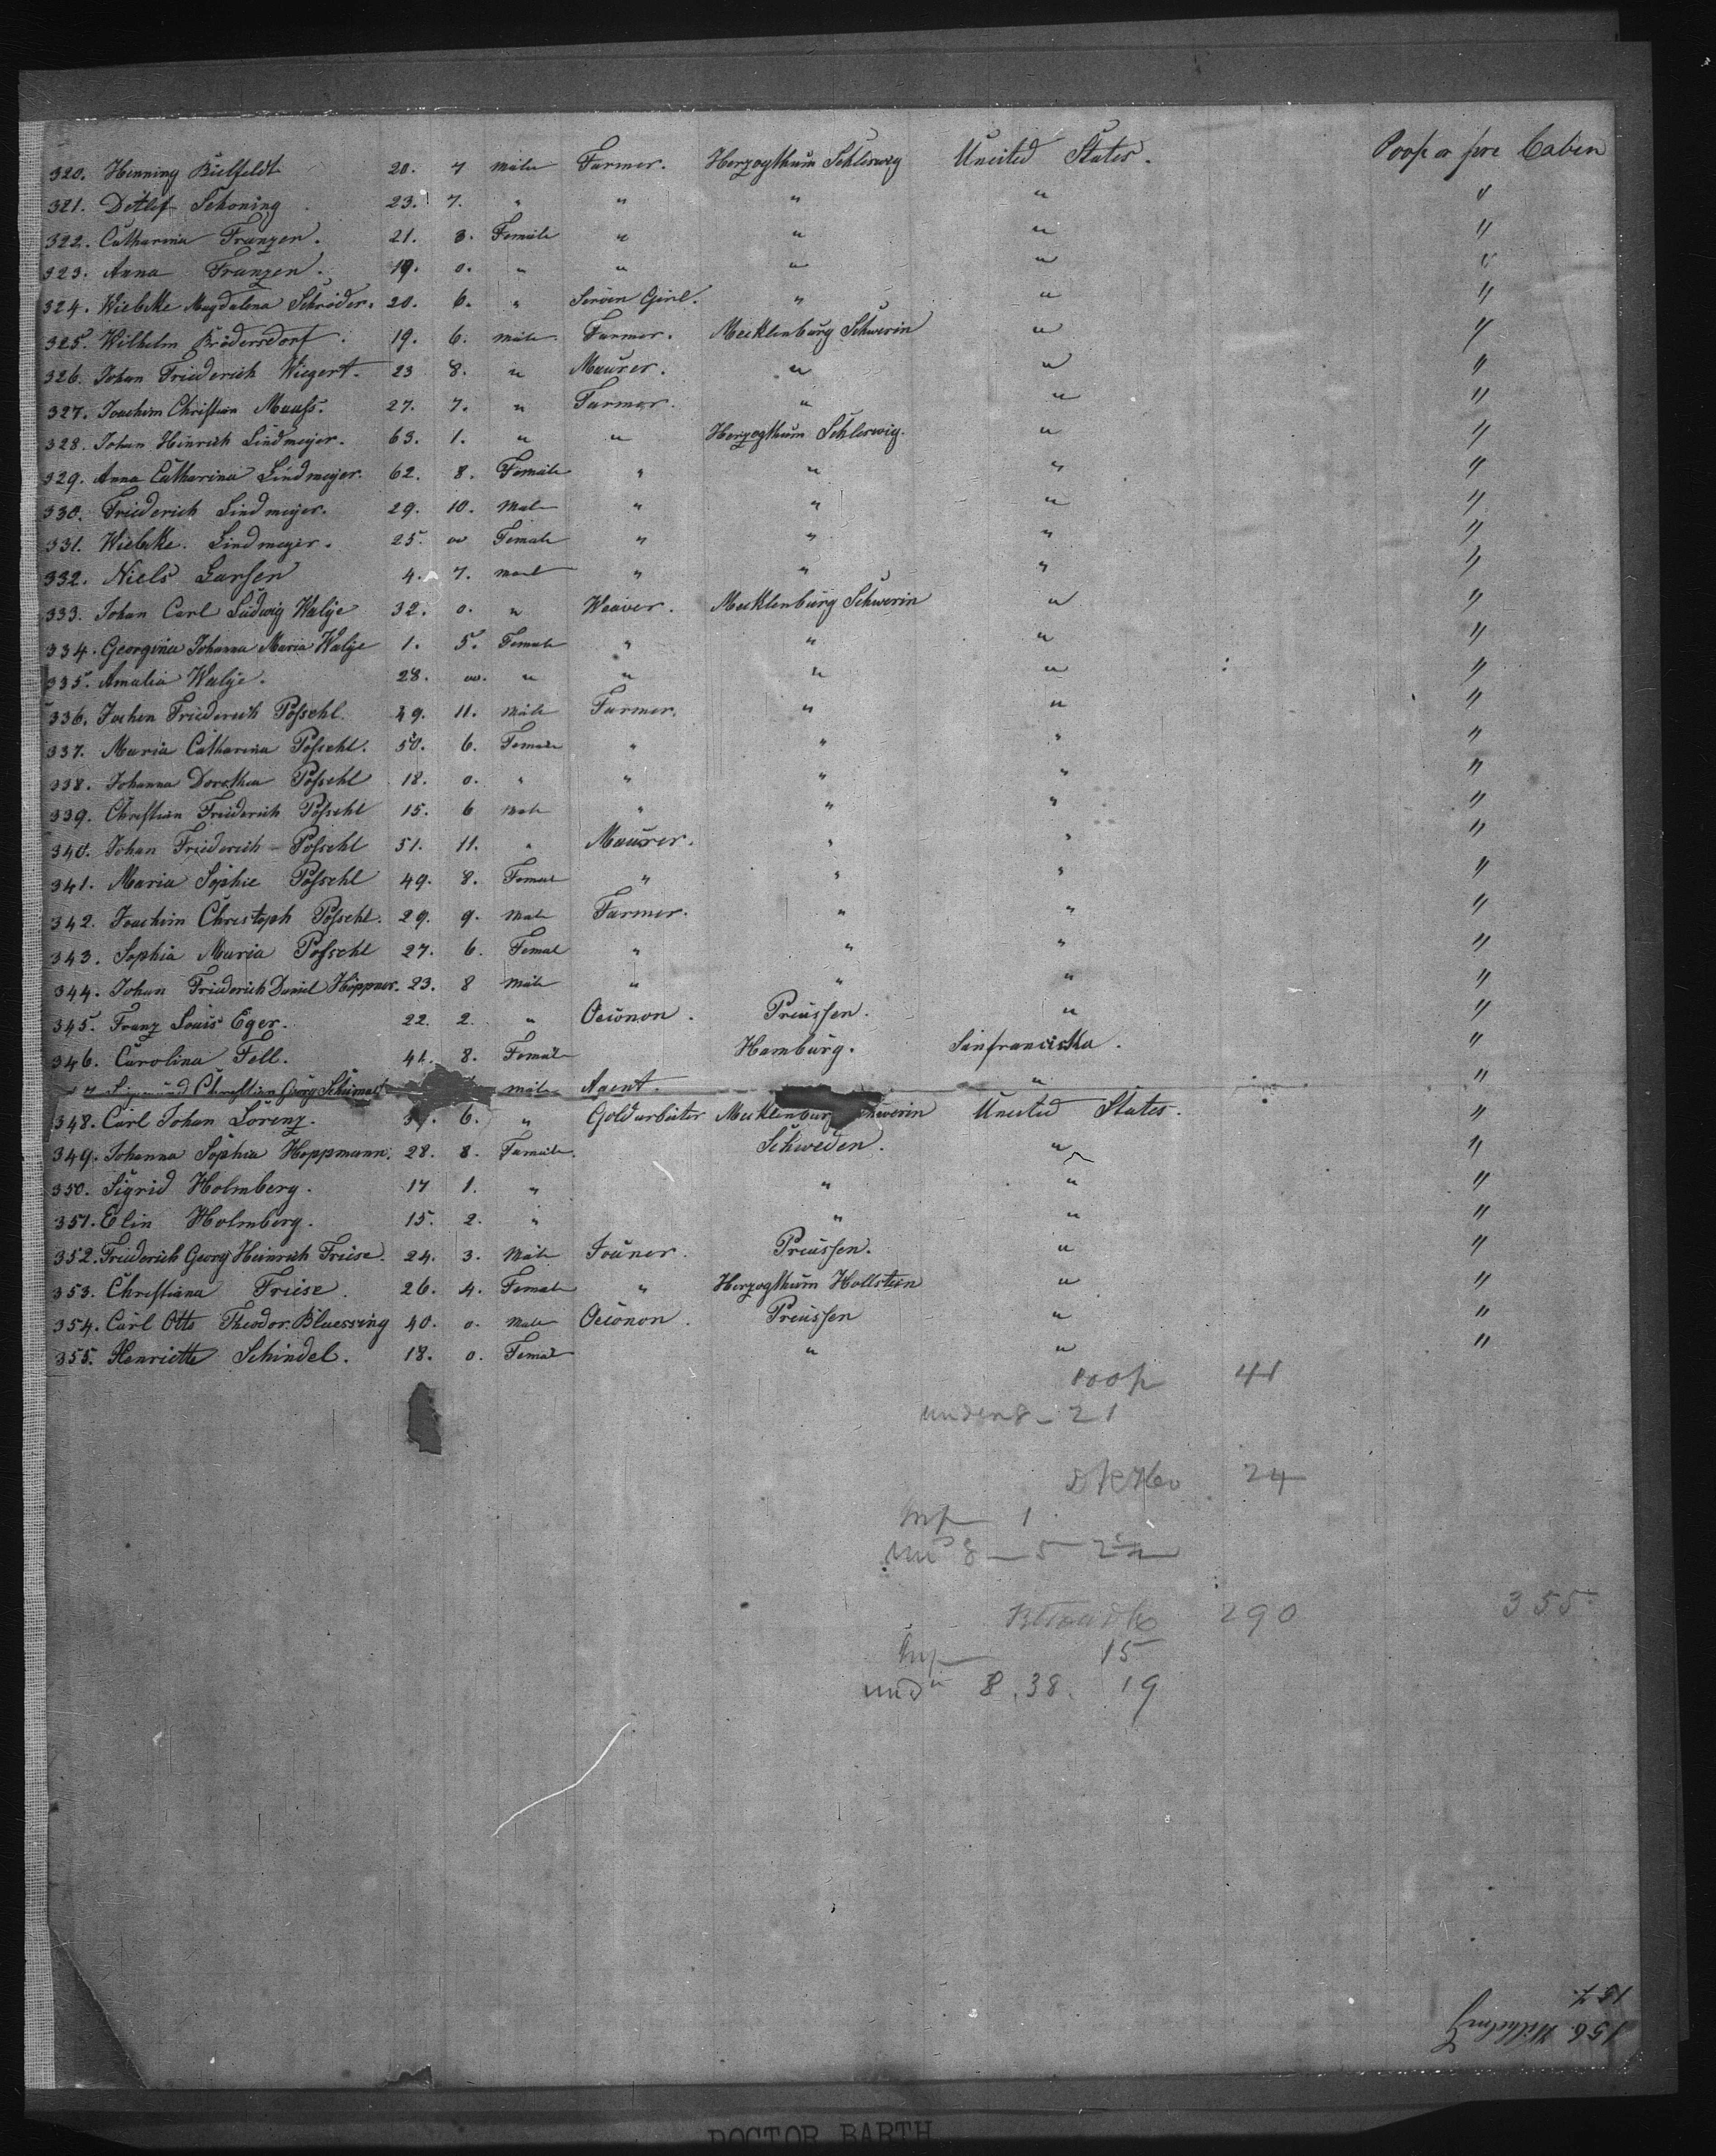 320. Henning Bielfeldt 20. 7 Male Farmer. Herzogthum Schleswig Uneited States. Poop or fore Cabin
321. Detlef Schoning 23. 7. " " " " "
322. Catharina Franzen. 21. 3. Female " " " "
323. Anna Franzen. 19. 0. " " " " "
324. Wiebke Magdalena Schröder. 20. 6. " Serven Girl. " " "
325. Wilhelm Brödersdorf. 19. 6. male Farmer. Mecklenburg Schwerin " "
326. Johan Friederich Wiegert. 23 8. " Maurer. " " "
327. Joachim Christian Maass. 27. 7. " Farmer. " " "
328. Johan Heinrich Lindmeyer. 63. 1. " " Herzogthum Schleswig. " "
329. Anna Catharina Lindmeyer. 62. 8. Female " " " "
330. Friederich Lindmeyer. 29. 10. Male " " " "
331. Wiebke. Lindmeyer. 25. Female " " " "
332. Niels Larsen 4. 7. mal " " " "
333. Johan Carl Ludwig Walje 32. 0. " Weaver. Mecklenburg Schwerin " "
334. Georgina Johanna Maria Walje 1. 5. Female " " " "
335. Amalia Walje. 28. " " " " "
336. Jochen Friederich Possehl. 49. 11. Male Farmer. " " "
337. Maria Catharina Possehl. 50. 6. Female " " " "
338. Johanna Dorothea Possehl 18. 0. " " " " "
339. Christian Friederich Possehl 15. 6 Male " " " "
340. Johan Friederich Possehl 51. 11. " Maurer. " " "
341. Maria Sophie Possehl 49. 8. Femal " " " "
342. Joachim Christoph Possehl. 29. 9. Male Farmer. " " "
343. Sophia Maria Possehl 27. 6. Femal " " " "
344. Johan Friederich Daniel Höppner. 23. 8 Male " " " "
345. Franz Louis Eger. 22. 2. " Oeconon. Preussen. " "
346. Carolina Fell. 41. 8. Female Hamburg. Sanfranciska. "
Christian Georg male Agent. " "
348. Carl Johan Lorenz. 6. " Goldarbeiter Mecklenburg Schwerin Uneited States. "
349. Johanna Sophia Hoppmann. 28. 8. Female. Schweden. " "
350. Sigrid Holmberg. 17 1. " " " "
351. Elin Holmberg. 15. 2. " " " "
352. Friederich Georg Heinrich Friese. 24. 3. Male Jouner. Preussen. " "
353. Christiana Friese. 26. 4. Female " Herzogthum Hollstein " "
354. Carl Otto Theodor Bluessing 40. 0. Male Oeconon. Preussen " "
355. Henriette Schindel. 18. 0. Femal " " "
Poop 41
under 8 - 21
24
Inf 1
und 8 - 5
290 355
Inf 15
und 8. 38. 19
156. Wilhelm
157.
DOCTOR BARTH